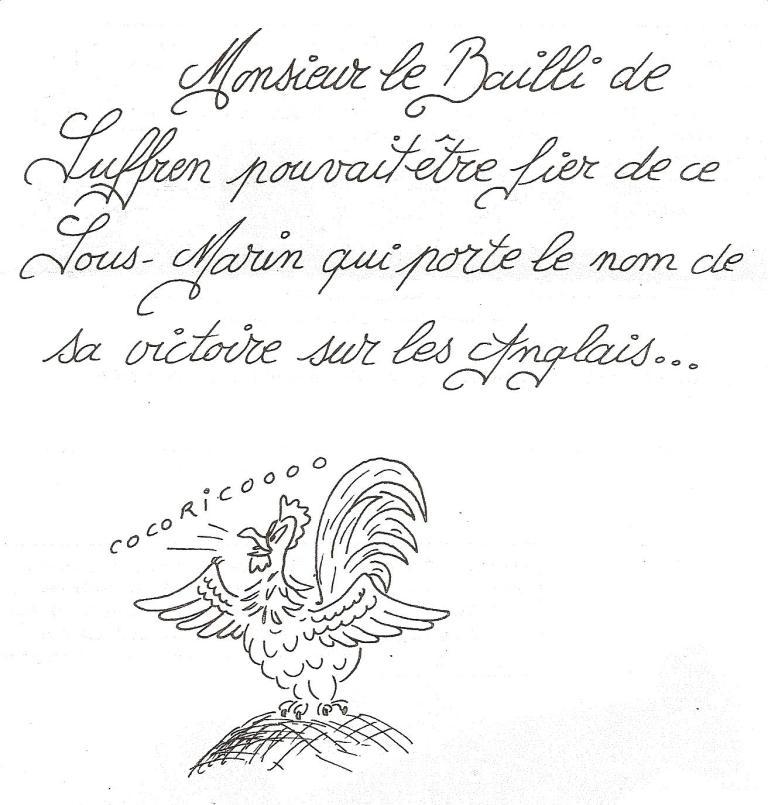 Monsieur le Bailli de
Suffren pouvait être fier de ce
Sous-Marin qui porte le nom de
sa victoire sur les Anglais...
COCORiCOOOO